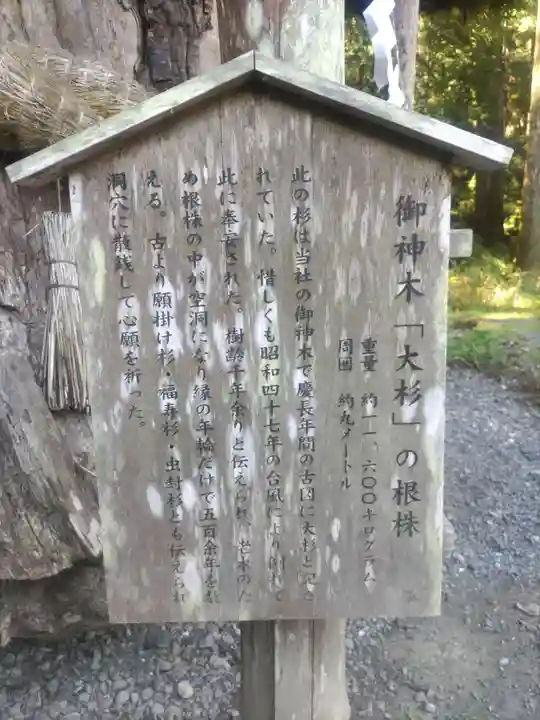 御神木「大杉」の根株
重量　約一一、六〇〇キログラム
周囲　約九メートル
此の杉は当社の御神木で慶長年間の古図に大杉と記さ
れていた。惜しくも昭和四十七年の台風により倒れて
此に奉安された。樹齢千年余りと伝えられ、老木のた
め根株の中が空洞になり縁の年輪だけで五百余年を数
える。古より願掛け杉・福寿杉・虫封杉とも伝えられ
洞穴に賽銭して心願を祈った。